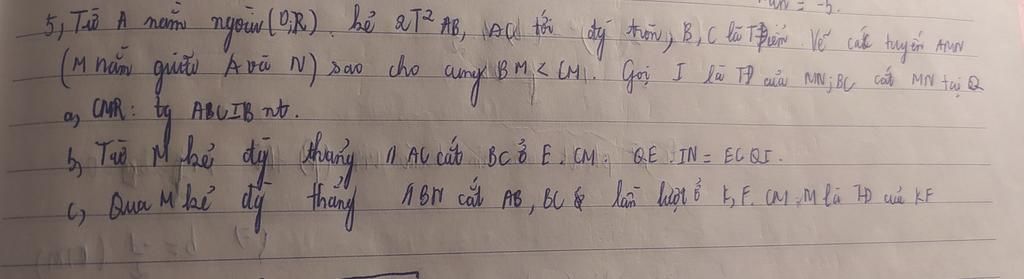 un = -5.
5, Từ A nằm ngoài (O;R). kẻ 2T² AB, AC tới đg tròn, B, C là TĐiểm. Vẽ cát tuyến AMN
(M nằm giữa A và N) sao cho cung BM < CM. Gọi I là TĐ của MN; BC cắt MN tại Q
a, CMR: tg ABCIB nt.
b, Từ M kẻ đg thẳng // AC cắt BC ở E. CM: QE.IN = EC.QI.
c, Qua M kẻ đg thẳng // BN cắt AB, BC lần lượt ở K, F. CM: M là TĐ của KF